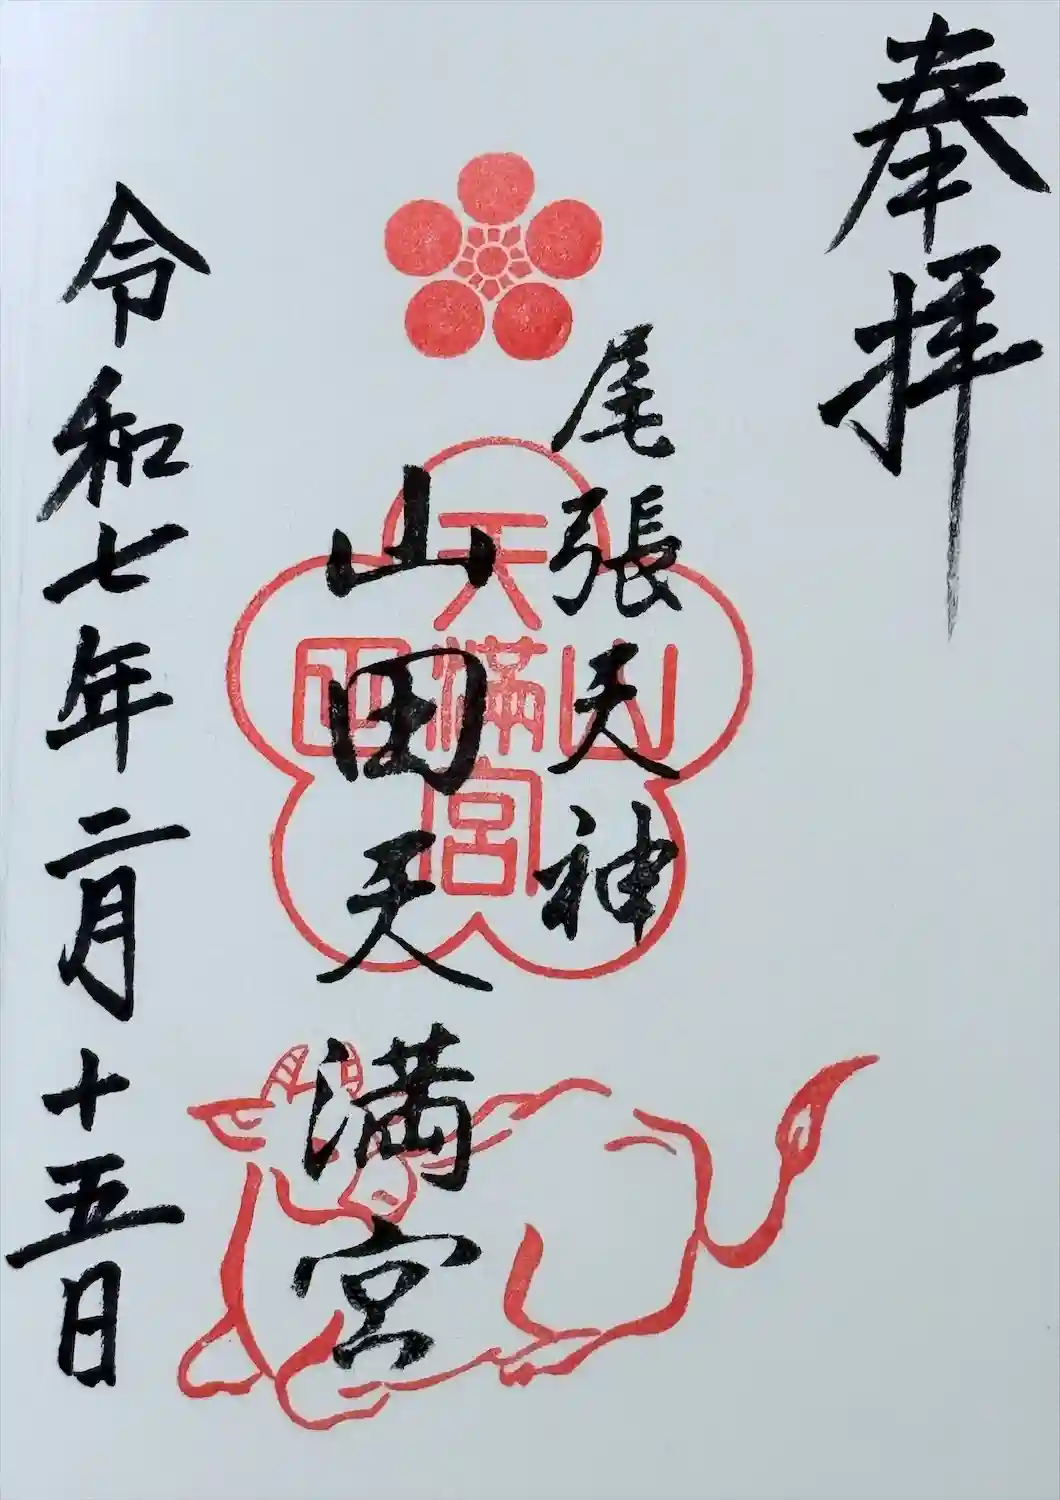 奉拝
尾張天神
山田天満宮
山田
天満宮
令和七年二月十五日